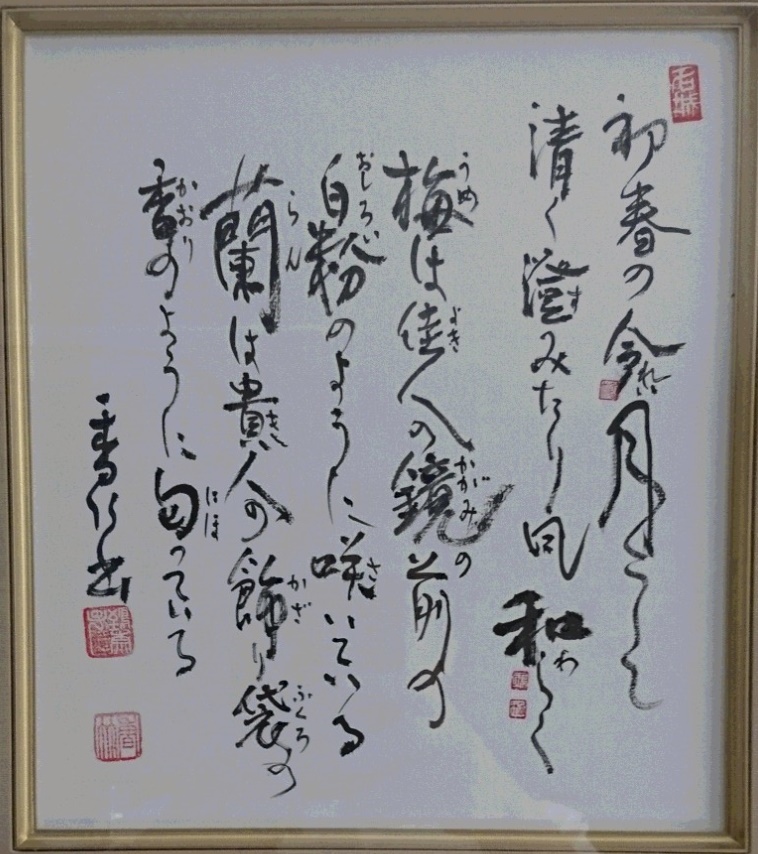 初春の令月にして
清く澄みたり風和らぐ
梅は佳人の鏡の前の
白粉のように咲いている
蘭は貴人の飾り袋の
香のように匂っている